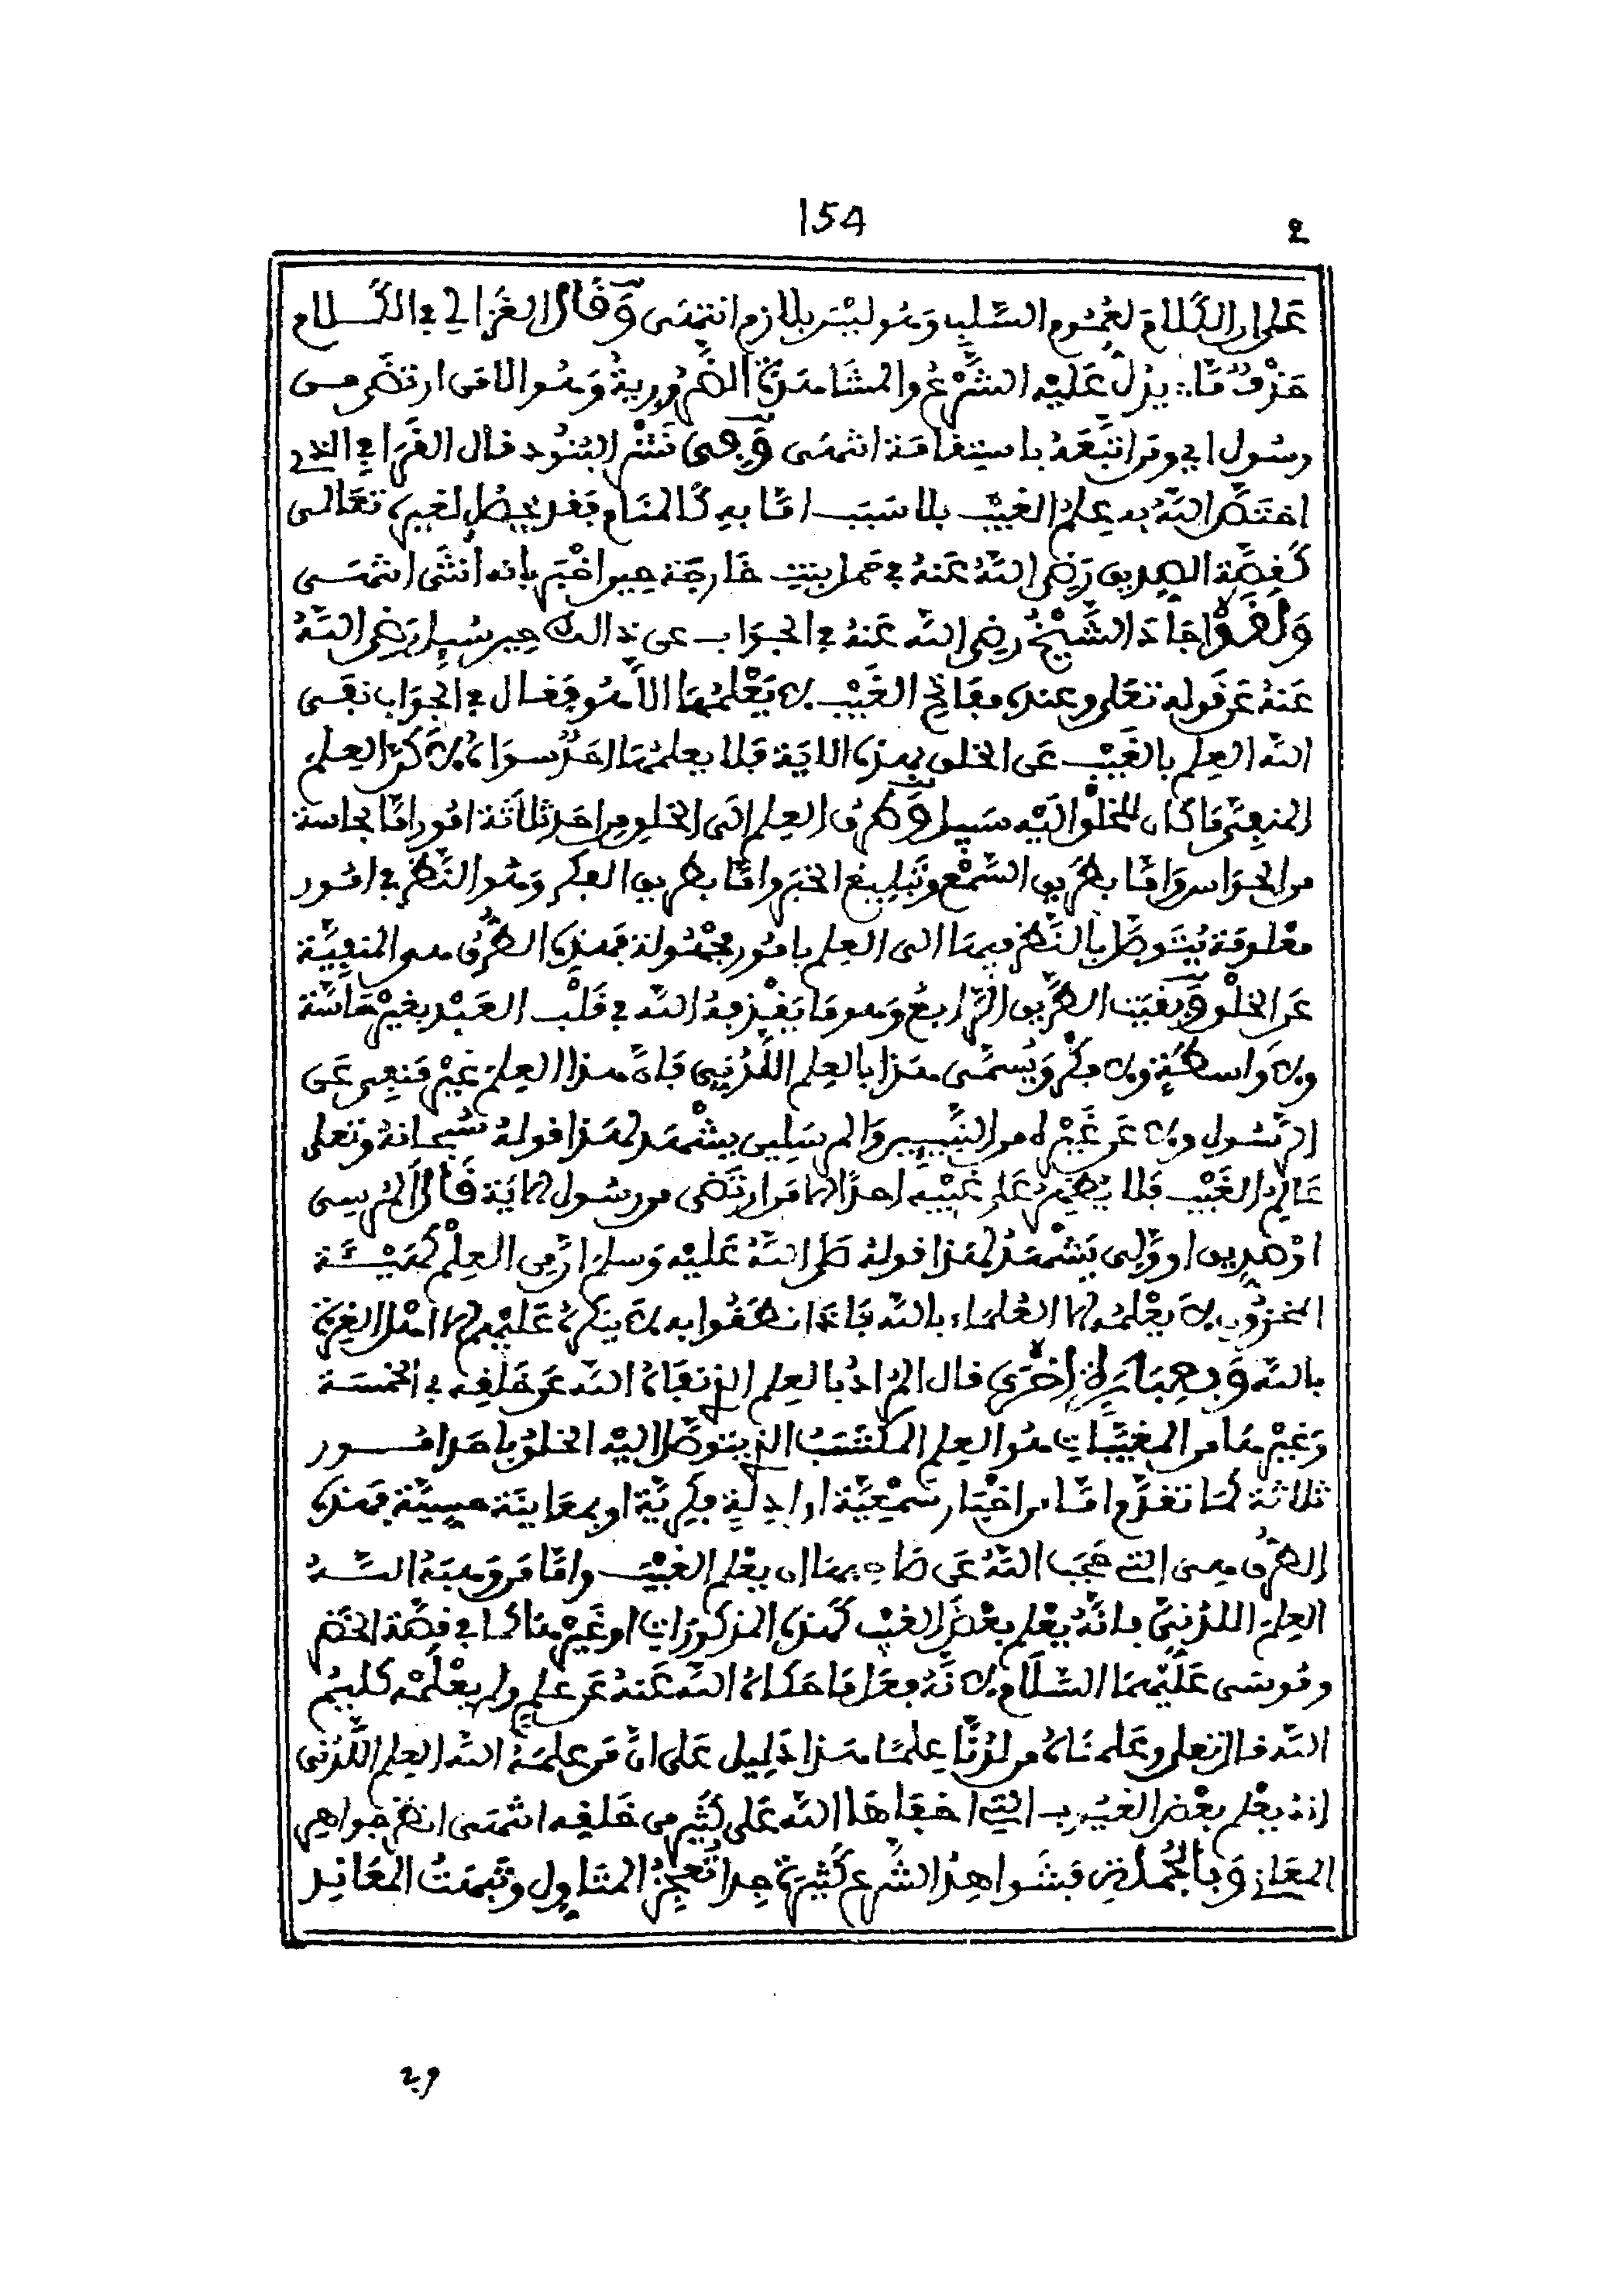 154
2
على ان الكلام لعموم السلب وهو ليس بلازم انتهى وقال الغزالي في الكلام
حذف مّا يدل عليه الشرع والمشاهدة الضرورية وهو الا من ارتضى من
رسول اي ومن اتبعه باستقامة انتهى وفي نشر البنود قال القرافي الذي
اختص الله به علم الغيب بلا سبب اما به كالمنام فقد يحصل لغيره تعالى
كقصة الصديق رضي الله عنه في حمل بنت خارجة حين اخبر بانه انثى انتهى
ولقد اجاد الشيخ رضي الله عنه في الجواب عن ذالك حين سيل رضي الله
عنه عن قوله تعلى وعنده مفاتح الغيب لا يعلمها الا هو فقال في الجواب نفى
الله العلم بالغيب عن الخلق بهذه الاية فلا يعلمها احد سواه لاكن العلم
المنفي ما كان للخلق اليه سبيل وطرق العلم الى الخلق من احد ثلاثة امور اما بحاسة
من الحواس واما بطريق السمع وتبليغ الخبر واما بطريق الفكر وهو النظر في امور
معلومة يتوصل بالنظر فيها الى العلم بامور مجهولة فهذه الطرق هي المنفية
عن الخلق وبقيت الطريق الرابع وهو ما يقذفه الله في قلب العبد بغير حاسة
ولا واسطة ولا فكر ويسمى هذا بالعلم اللدني فان هذا العلم غير منفي عن
الرسول ولا عن غيره من النبيين والمرسلين يشهد لهذا قوله سبحانه وتعلى
عالم الغيب فلا يظهر على غيبه احدا الا من ارتضى من رسول الاية قال المرسي
او صديق او ولي يشهد لهذا قوله صلى الله عليه وسلم ان من العلم كهيئة
المخزون لا يعلمه الا العلماء بالله فاذا نطقوا به لا ينكره عليهم الا اهل الغرة
بالله وبعبارة اخرى قال المراد بالعلم الذي نفاه الله عن خلقه في الخمسة
وغيرها من المغيبات هو العلم المكتسب الذي يتوصل اليه الخلق باحد امور
ثلاثة كما تقدم اما من اخبار سمعية او ادلة فكرية او بمعاينة حسية فهذه
الطرق هي التي حجب الله عن صاحبها ان يعلم الغيب واما من وهبه الله
العلم اللدني فانه يعلم بعض الغيب كهذه المذكورات او غيرها كما في قصة الخضر
وموسى عليهما السلام لانه فعل ما حكاه الله عنه عن علم ولم يعلمه كليم
الله قال تعلى وعلمناه من لدنا علما هذا دليل على ان من علمه الله العلم اللدني
انه يعلم بعض الغيوب التي اخفاها الله على كثير من خلقه انتهى انظر جواهر
المعاني وبالجملة فشواهد الشرع كثيرة جدا تعجز المتاول وتبهت المعاند